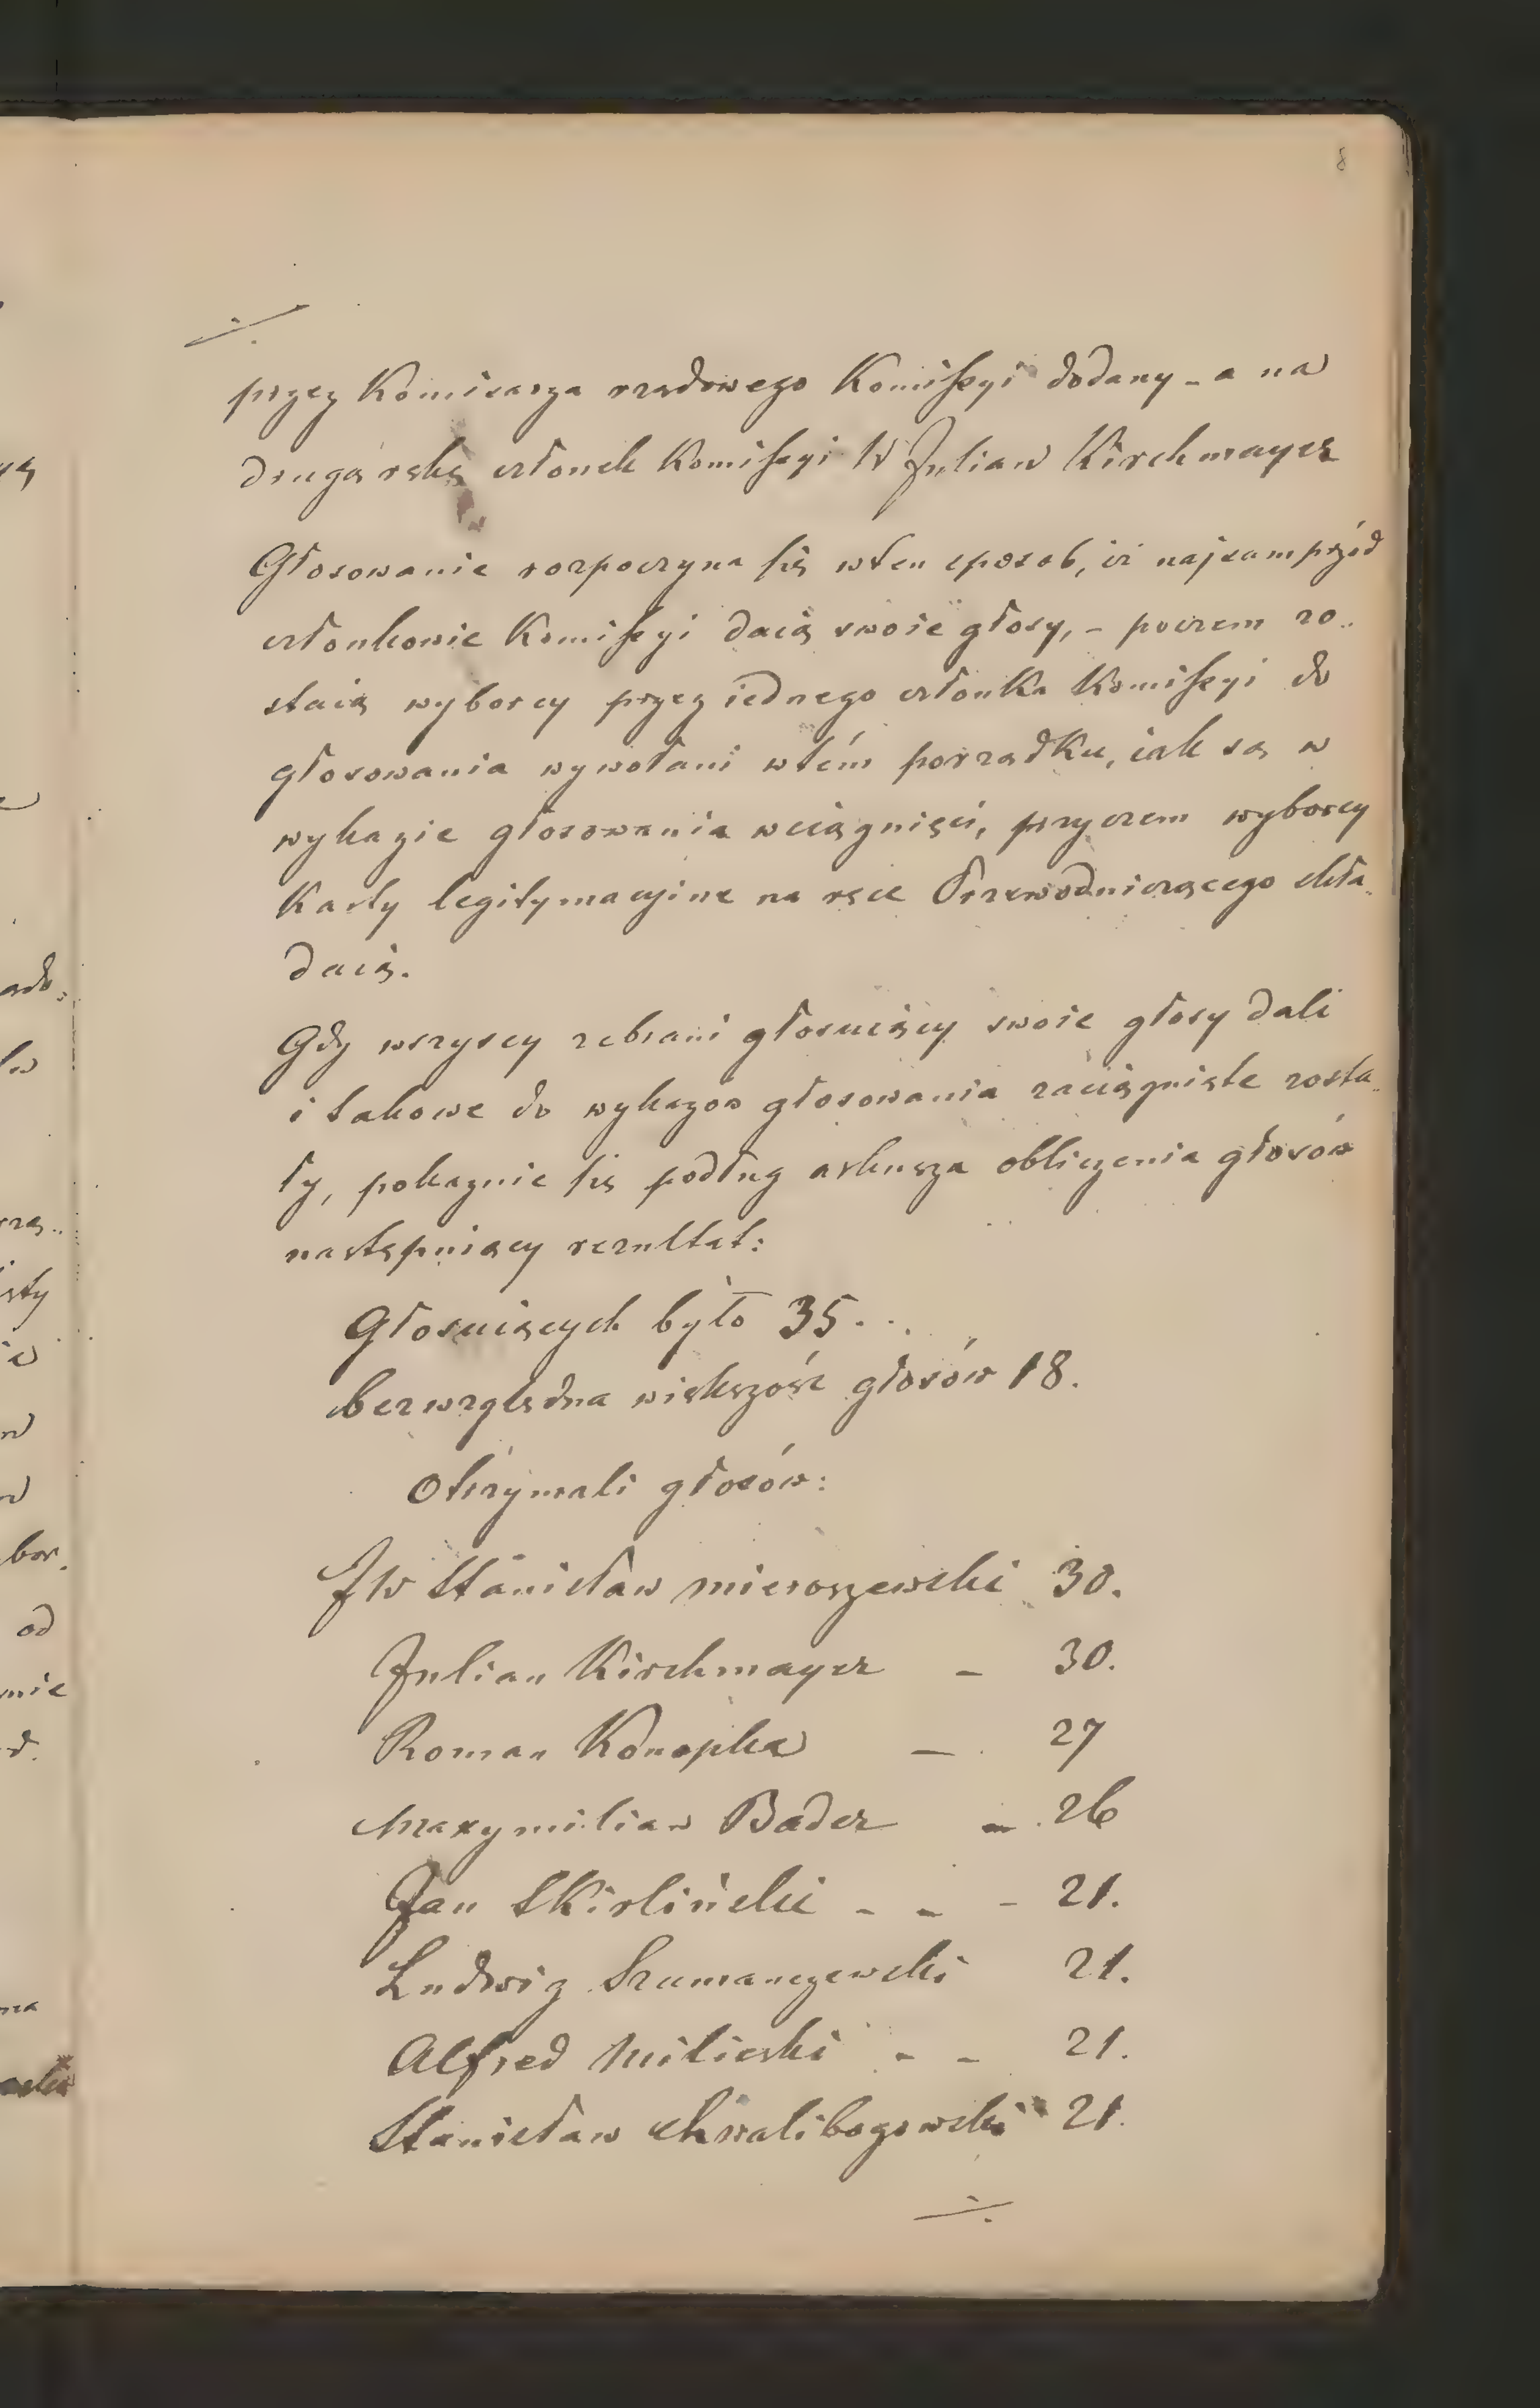 8
./.
przez Komisarza rządowego Komissyi dodany - a na
drugą ręką członek Komissyi W Julian Kirchmayer
Głosowanie rozpoczyna się wten sposob, iż najsamprzód
członkowie Komissyi daią swoie głosy, - poczem zo..
staią wyborcy przez iednego członka Komissyi do
głosowania wywołani wtém porządku, iak są w
wykazie głosowania wciągnięci, przyczem wyborcy
Karty legitymacyine na ręce Przewodniczącego skła..
daią.
Gdy wszyscy zebrani głosuiący swoie głosy dali
i takowe do wykazów głosowania zaciągnięte zosta..
ły, pokazuie się podług arkusza obliczenia głosów
następuiący rezultat:
Głosuiących było 35.
bezwzględna większość głosów 18.
Otrzymali głosów:
JW Stanisław Mieroszewski 30.
Julian Kirchmayer - 30.
Roman Konopka - 27
Maxymilian Bader - 26
Jan Skirliński - - - 21.
Ludwig Szumanczewski 21.
Alfred Milieski - - 21.
Stanisław Chwalibogowski 21.
./.